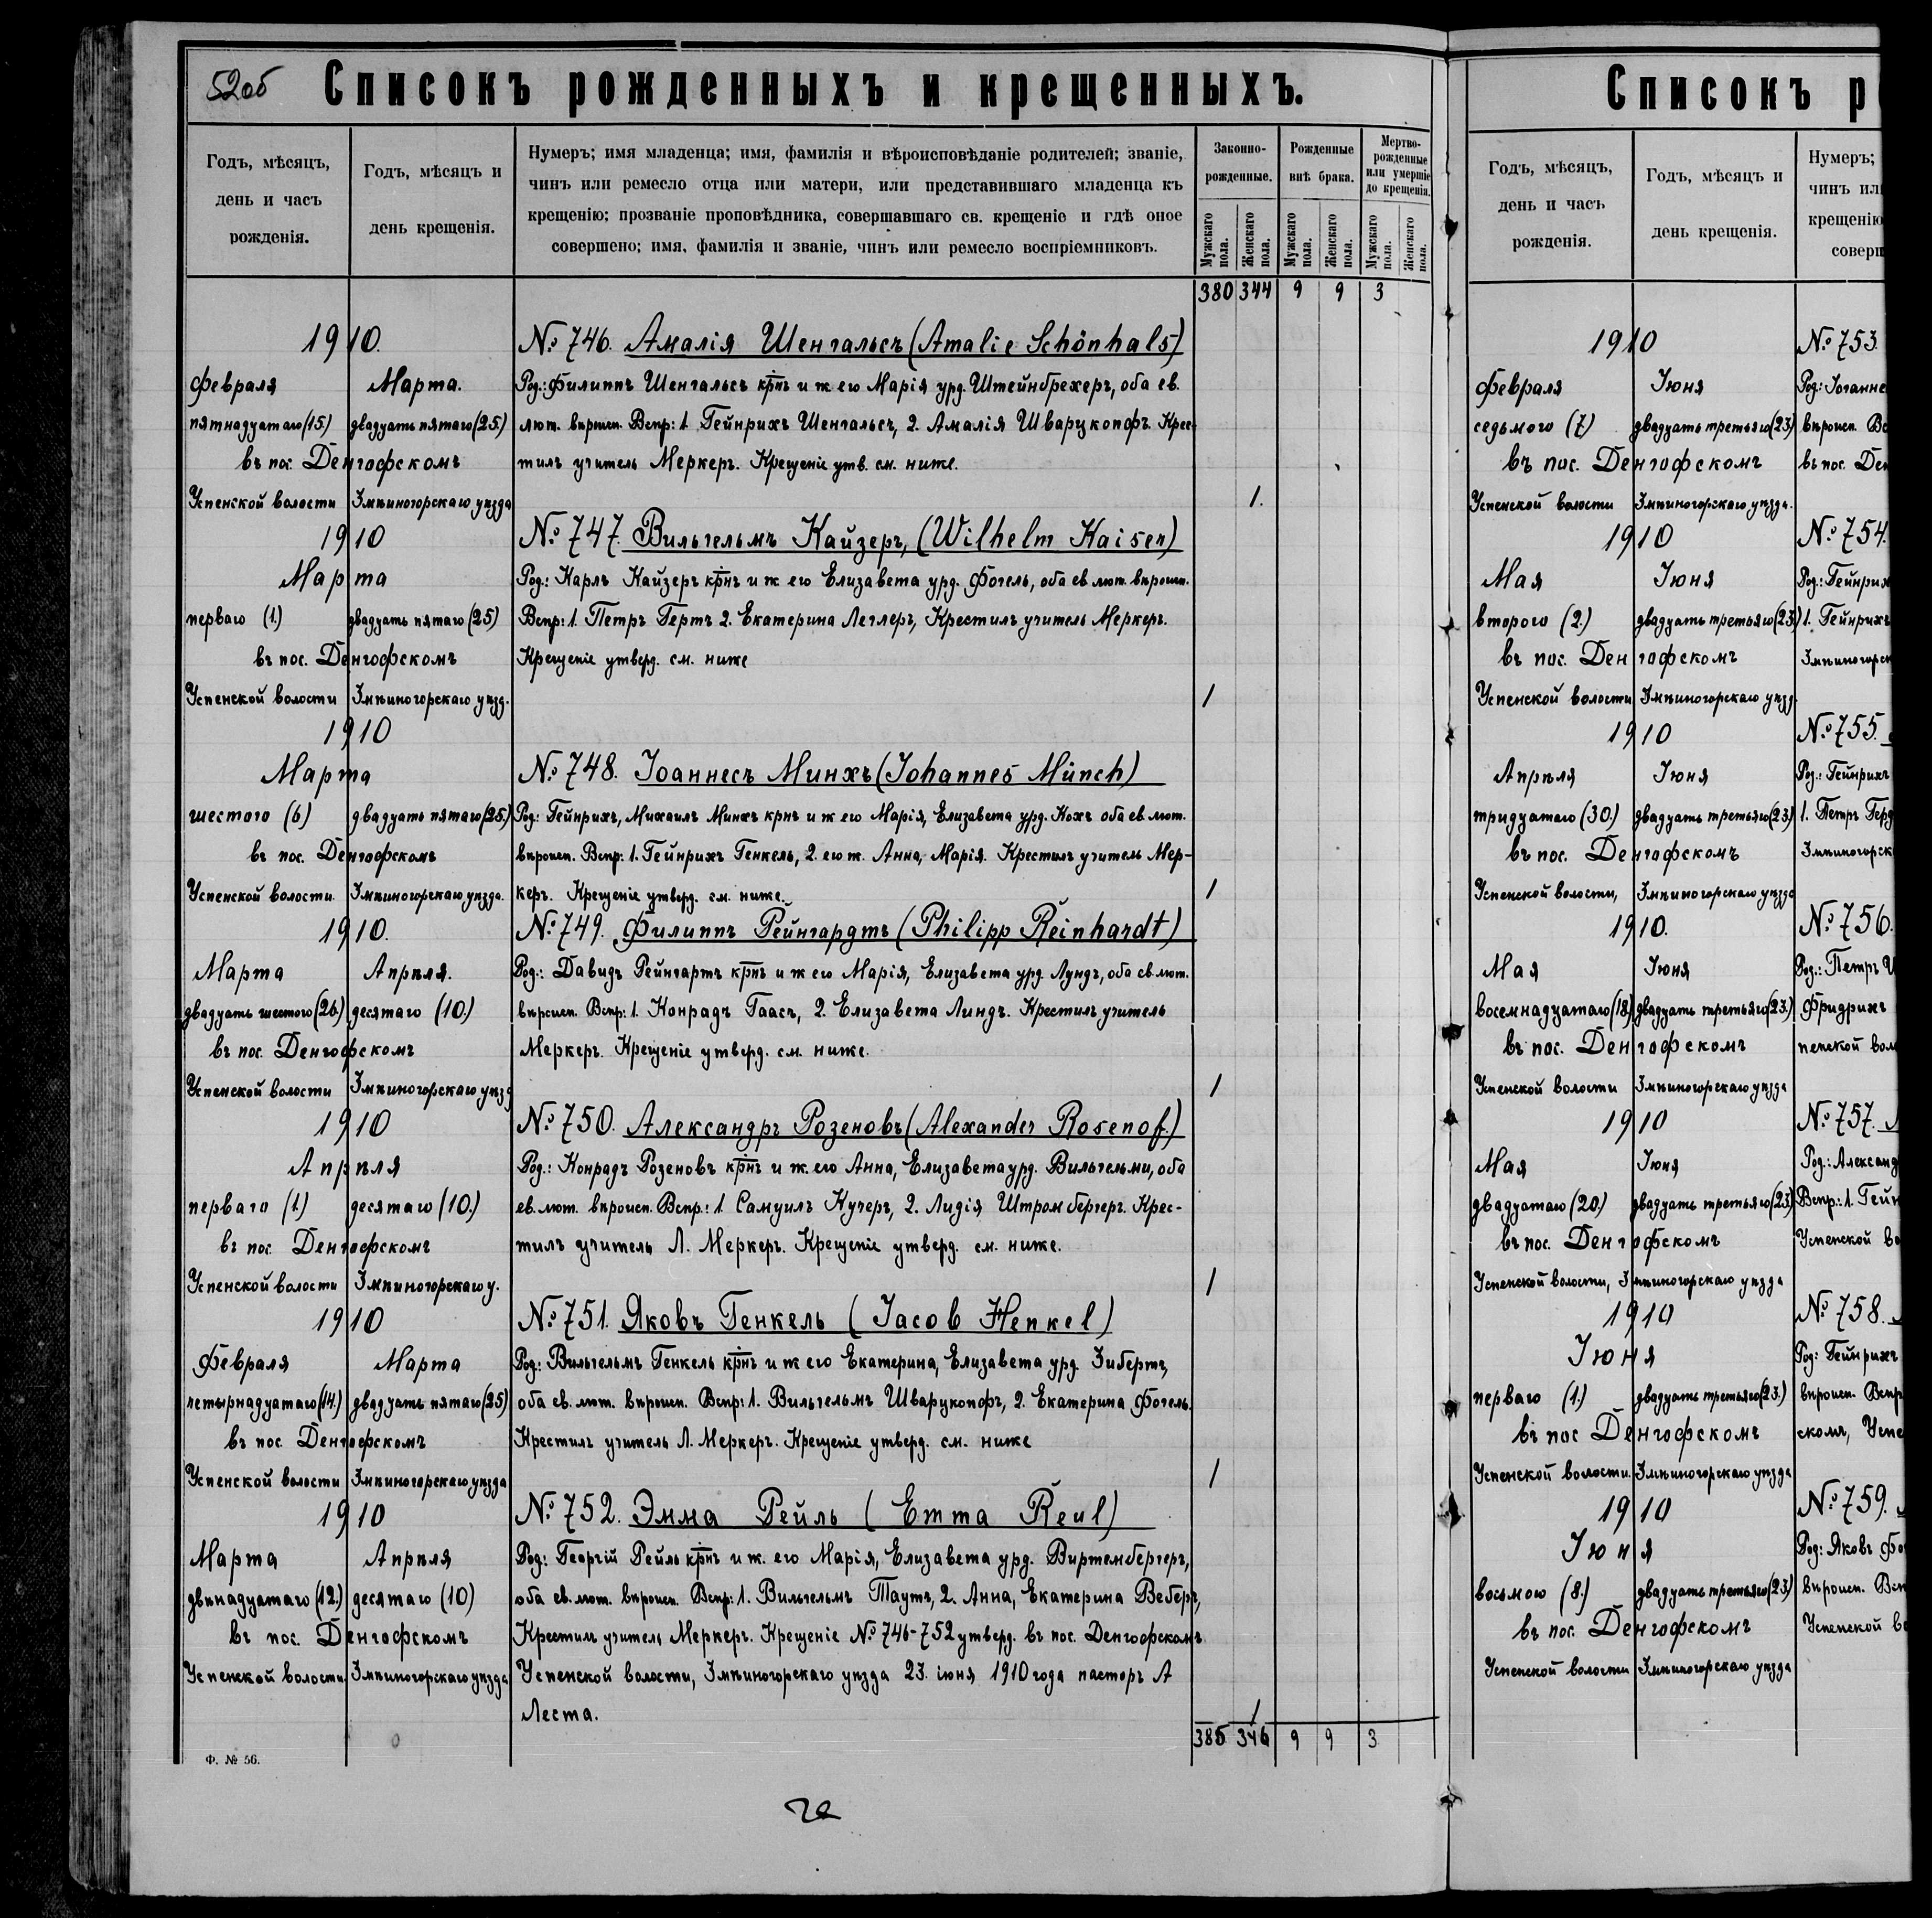 52об
Списокъ рожденныхъ и крещенныхъ.
Годъ, мѣсяцъ,
день и часъ
рожденія.
Годъ, мѣсяцъ и
день крещенія.
Нумеръ; имя младенца; имя, фамилія и вѣроисповѣданіе родителей; званіе,
чинъ или ремесло отца или матери, или представившаго младенца къ
крещенію; прозваніе проповѣдника, совершавшаго св. крещеніе и гдѣ оное
совершено; имя, фамилія и званіе, чинъ или ремесло воспріемниковъ.
Законно-
рожденные.
Рожденные
внѣ брака.
Мертво-
рожденные
или умершіе
до крещенія.
Мужскаго пола.
Женскаго пола.
Мужскаго пола.
Женскаго пола.
Мужскаго пола.
Женскаго пола.
380 344 9 9 3
1910. №746. Амалія Шенгальсъ (Amalie Schönhals)
Февраля Марта. Род.: Филиппъ Шенгальсъ крнъ и ж его Марія урд. Штейнбрехеръ, оба ев.
пятнадцатаго (15.) двадцать пятаго (25.) лют. вѣроисп. Вспр: 1. Гейнрихъ Шенгальсъ, 2. Амалія Шварцкопфъ. Крес-
въ пос. Денгофскомъ тилъ учитель Меркеръ. Крещеніе утв. см. ниже.
Успенской волости Змѣиногорскаго уѣзда 1.
1910 №747. Вильгельмъ Кайзеръ, (Wilhelm Kaiser)
Марта Род.: Карлъ Кайзеръ крнъ и ж его Елизавета урд. Фогель, оба ев лют. вѣроисп.
перваго (1.) двадцать пятаго (25) Вспр: 1. Петръ Гертъ 2. Екатерина Леглеръ, Крестилъ учитель Меркеръ.
въ пос. Денгофскомъ Крещеніе утверд. см. ниже
Успенской волости Змѣиногорскаго уѣзд. 1
1910
Марта №748. Іоаннесъ Минхъ (Iohannes Münch)
шестого (6) двадцать пятаго (25.) Род: Гейнрихъ, Михаилъ Минхъ крнъ и ж его Марія, Елизавета урд. Кохъ оба ев. лют.
въ пос. Денгофскомъ вѣроисп. Вспр: 1. Гейнрихъ Генкель, 2. его ж. Анна, Марія. Крестилъ учитель Мер-
Успенской волости Змѣиногорскаго уѣзда. керъ. Крещеніе утверд. см. ниже. 1
1910. №749. Филиппъ Рейнгардтъ (Philipp Reinhardt)
Марта Апрѣля. Род.: Давидъ Рейнгартъ крнъ и ж его Марія, Елизавета урд. Лундъ, оба ев. лют.
двадцать шестого (26.) десятаго (10.) вѣроисп. Вспр: 1. Конрадъ Гаасъ, 2. Елизавета Линдъ. Крестилъ учитель
въ пос. Денгофскомъ Меркеръ. Крещеніе утверд. см. ниже.
Успенской волости Змѣиногорскаго уѣзд 1
1910 №750. Александръ Розеновъ (Alexander Rosenof.)
Апрѣля Род.: Конрадъ Розеновъ крнъ и ж. его Анна, Елизавета урд. Вильгельми, оба
перваго (1.) десятаго (10.) ев. лют. вѣроисп. Вспр.: 1. Самуилъ Кучеръ, 2. Лидія Штромбергеръ. Крес-
въ пос. Денгофскомъ тилъ учитель Л. Меркеръ. Крещеніе утверд. см. ниже.
Успенской волости Змѣиногорскаго у. 1
1910 №751. Яковъ Генкель (Jacob Henkel)
Февраля Марта Род.: Вильгельмъ Генкель крнъ и ж его Екатерина, Елизавета урд. Зибертъ,
четырнадцатаго (14.) двадцать пятаго (25) оба ев. лют. вѣроисп. Вспр: 1. Вильгельмъ Шварцкопфъ, 2. Екатерина Фогель.
въ пос. Денгофскомъ Крестилъ учитель Л. Меркеръ. Крещеніе утверд. см. ниже
Успенской волости Змѣиногорскаго уѣзда 1
1910 №752. Эмма Рейль (Emma Reul)
Марта Апрѣля Род: Георгій Рейль крнъ и ж. его Марія, Елизавета урд. Виртембергеръ,
двѣнадцатаго (12.) десятаго (10) оба ев. лют. вѣроисп. Вспр: 1. Вильгельмъ Таутъ, 2. Анна, Екатерина Веберъ,
въ пос. Денгофскомъ Крестилъ учитель Меркеръ. Крещеніе №746-752 утверд. въ пос. Денгофскомъ
Успенской волости Змѣиногорскаго уѣзда Успенской волости, Змѣиногорскаго уѣзда 23. іюня 1910 года пасторъ А
Леста. 1
385 346 9 9 3
Ф. № 56.
Списокъ р
Годъ, мѣсяцъ,
день и часъ
рожденія.
Годъ, мѣсяцъ и
день крещенія.
Нумеръ;
чинъ ил
крещенію
соверш
1910 №753.
Февраля Іюня Род.: Іоганне
седьмого (7) двадцать третьяго (23) вѣроисп. Вс
въ пос. Денгофскомъ въ пос. Ден
Успенской волости Змѣиногорскаго уѣзда.
1910 №754.
Мая Іюня Род.: Гейнрих
второго (2.) двадцать третьяго (23.) 1. Гейнрихъ
въ пос. Денгофскомъ Змѣиногорск
Успенской волости Змѣиногорскаго уѣзд
1910 №755.
Апрѣля Іюня Род.: Гейнрихъ
тридцатаго (30.) двадцать третьяго (23.) 1. Петръ Герд
въ пос. Денгофскомъ Змѣиногорск
Успенской волости, Змѣиногорскаго уѣзда
1910. №756.
Мая Іюня Род.: Петръ
восемнадцатаго (18.) двадцать третьяго (23.) Фридрихъ
въ пос. Денгофскомъ пенской вол
Успенской волости Змѣиногорскаго уѣзда
1910 №757.
Мая Іюня Род.: Александ
двадцатаго (20.) двадцать третьяго (23.) Вспр.: 1. Гейн
въ пос. Денгофскомъ Успенской во
Успенской волости, Змѣиногорскаго уѣзда
1910 №758.
Іюня Род: Гейнрихъ
перваго (1.) двадцать третьяго (23.) вѣроисп. Вспр
въ пос Денгофскомъ скомъ, Успе
Успенской волости Змѣиногорскаго уѣзда
1910 №759.
Іюня Род: Яковъ Фо
восьмого (8.) двадцать третьяго (23.) вѣроисп. Всп
въ пос. Денгофскомъ Успенской во
Успенской волости Змѣиногорскаго уѣзда